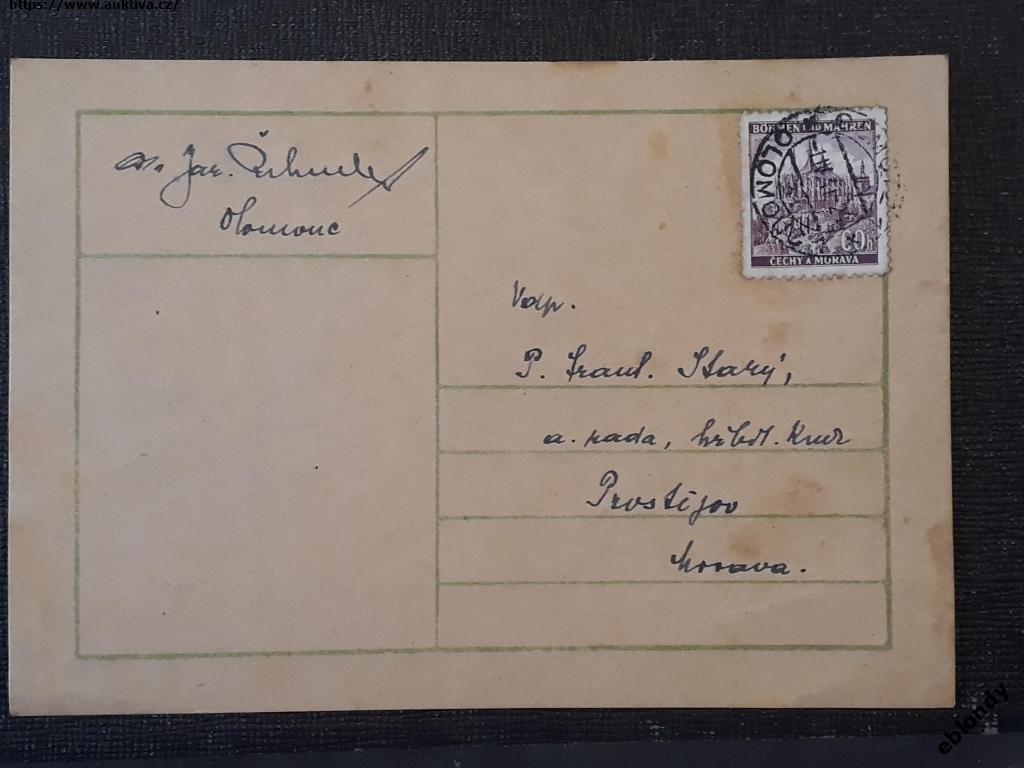 https://www.auktiva.cz/
Jar.
Olomouc
BÖHMEN UND MÄHREN
OLOMOUC
60h
ČECHY A MORAVA
Vdp.
P. Frant. Starý,
a. rada, hřbit.
Prostějov
Morava.
eblondy